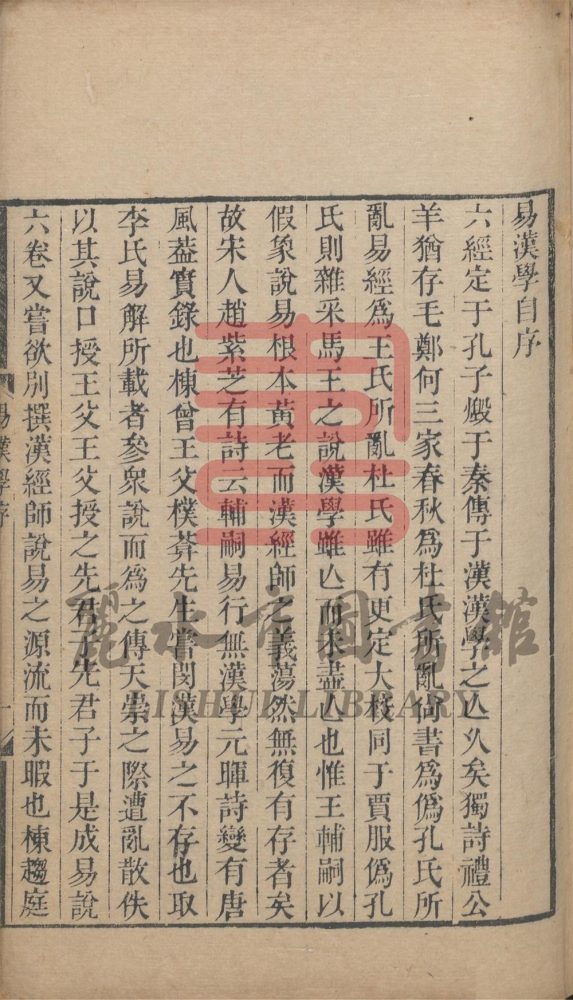 易漢學自序
六經定于孔子燬于秦傳于漢漢學之亾久矣獨詩禮公
羊猶存毛鄭何三家春秋為杜氏所亂尚書為偽孔氏所
亂易經為王氏所亂杜氏雖有更定大校同于賈服偽孔
氏則雜采馬王之說漢學雖亾而未盡亾也惟王輔嗣以
假象說易根本黃老而漢經師之義蕩然無復有存者矣
故宋人趙紫芝有詩云輔嗣易行無漢學元暉詩變有唐
風葢實錄也棟曾王父樸菴先生嘗閔漢易之不存也取
李氏易解所載者參衆說而為之傳天崇之際遭亂散佚
以其說口授王父王父授之先君子先君子于是成易說
六卷又嘗欲別撰漢經師說易之源流而未暇也棟趨庭
易漢學序
一
麗水市圖書館
LISHUI LIBRARY